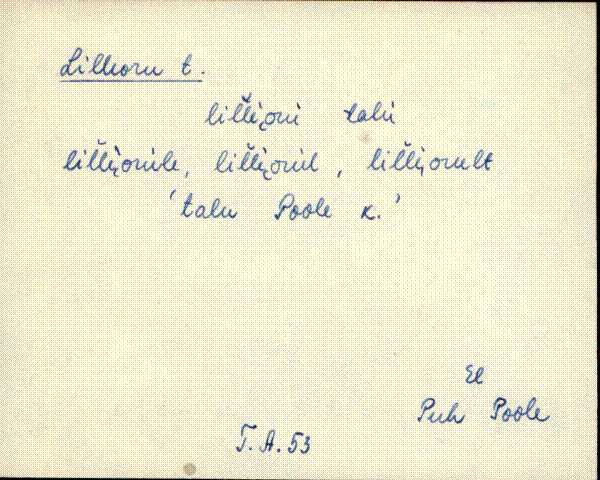 Lilleoru t.
lil̆l̆i̯oru talu
lil̆l̆i̯orule, lil̆l̆i̯orul, lil̆l̆i̯orult
'talu Poole k.'
El
Puh Poole
T.A. 53